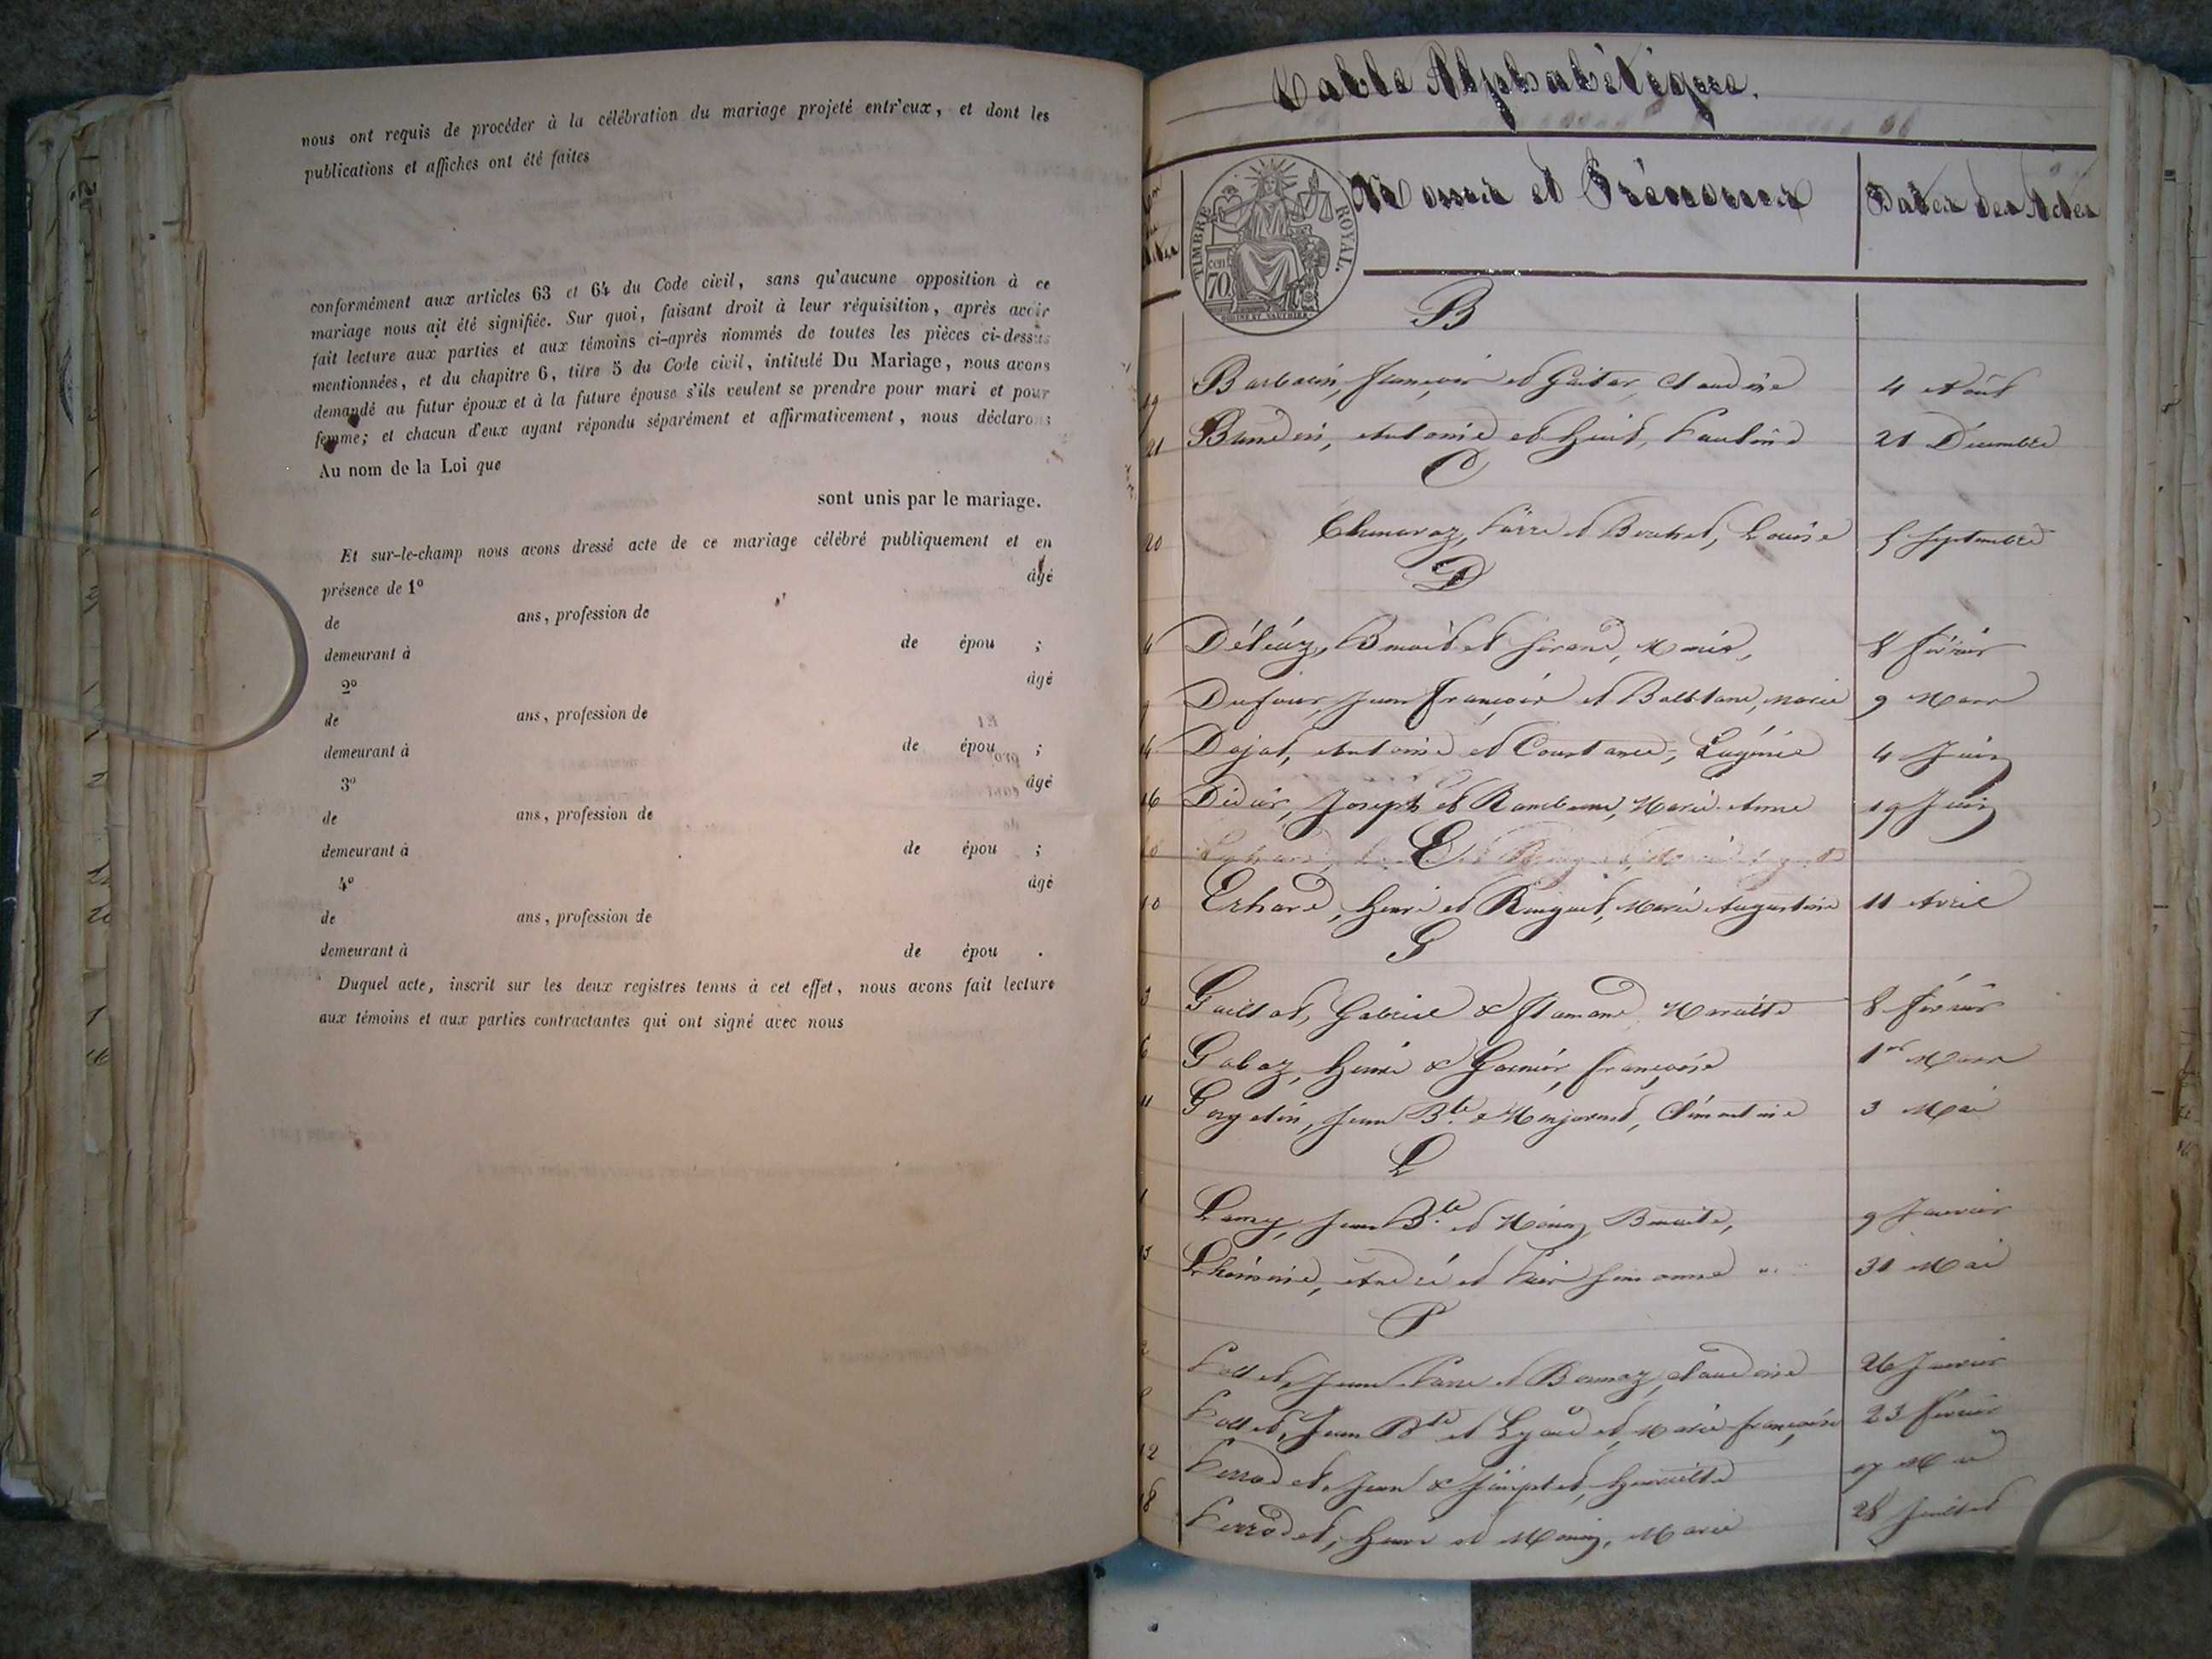 nous ont requis de procéder à la célébration du mariage projeté entr'eux, et dont les
publications et affiches ont été faites
conformément aux articles 63 et 64 du Code civil, sans qu'aucune opposition à ce
mariage nous ait été signifiée. Sur quoi, faisant droit à leur réquisition, après avoir
fait lecture aux parties et aux témoins ci-après nommés de toutes les pièces ci-dessus
mentionnées, et du chapitre 6, titre 5 du Code civil, intitulé Du Mariage, nous avons
demandé au futur époux et à la future épouse s'ils veulent se prendre pour mari et pour
femme; et chacun d'eux ayant répondu séparément et affirmativement, nous déclarons
Au nom de la Loi que
sont unis par le mariage.
Et sur-le-champ nous avons dressé acte de ce mariage célébré publiquement et en
présence de 1º âgé
de ans, profession de
demeurant à de épou ;
2º âgé
de ans, profession de
demeurant à de épou ;
3º âgé
de ans, profession de
demeurant à de épou ;
4º âgé
de ans, profession de
demeurant à de épou .
Duquel acte, inscrit sur les deux registres tenus à cet effet, nous avons fait lecture
aux témoins et aux parties contractantes qui ont signé avec nous
Table Alphabétique.
Noms et Prénoms Dates des Actes
TIMBRE ROYAL.
70
B
19 Barbarin, François et Claudine 4 Août
21 Antoine et Pauline 21 Décembre
C
20 Pierre et Louise 5 Septembre
D
Benoit et Marie, 8 février
Dufour, Jean François et Marie 9 Mars
Dajat, Antoine et Constance, Eugénie 4 Juin
16 Didier, Joseph et Rambeau, Marie Anne 19 Juin
E
10 Erhard, Henri et Ringuet, Marie Augustine 11 Avril
G
3 Gaillot, Gabriel & Flamand Mariette 8 février
6 Gabaz, Henri & Garnier, françoise 1er Mars
11 Jean Bte & Clémentine 3 Mai
L
1 Lamy, Jean Bte et Benoite, 9 Janvier
13 André et 31 Mai
P
2 Jean Pierre et Claudine 26 Janvier
Jean Bte et Marie françoise 23 février
12 Perrodet, Jean & Henriette 17 Mai
18 Perrodet, Henri et Monin, Marie 28 Juillet